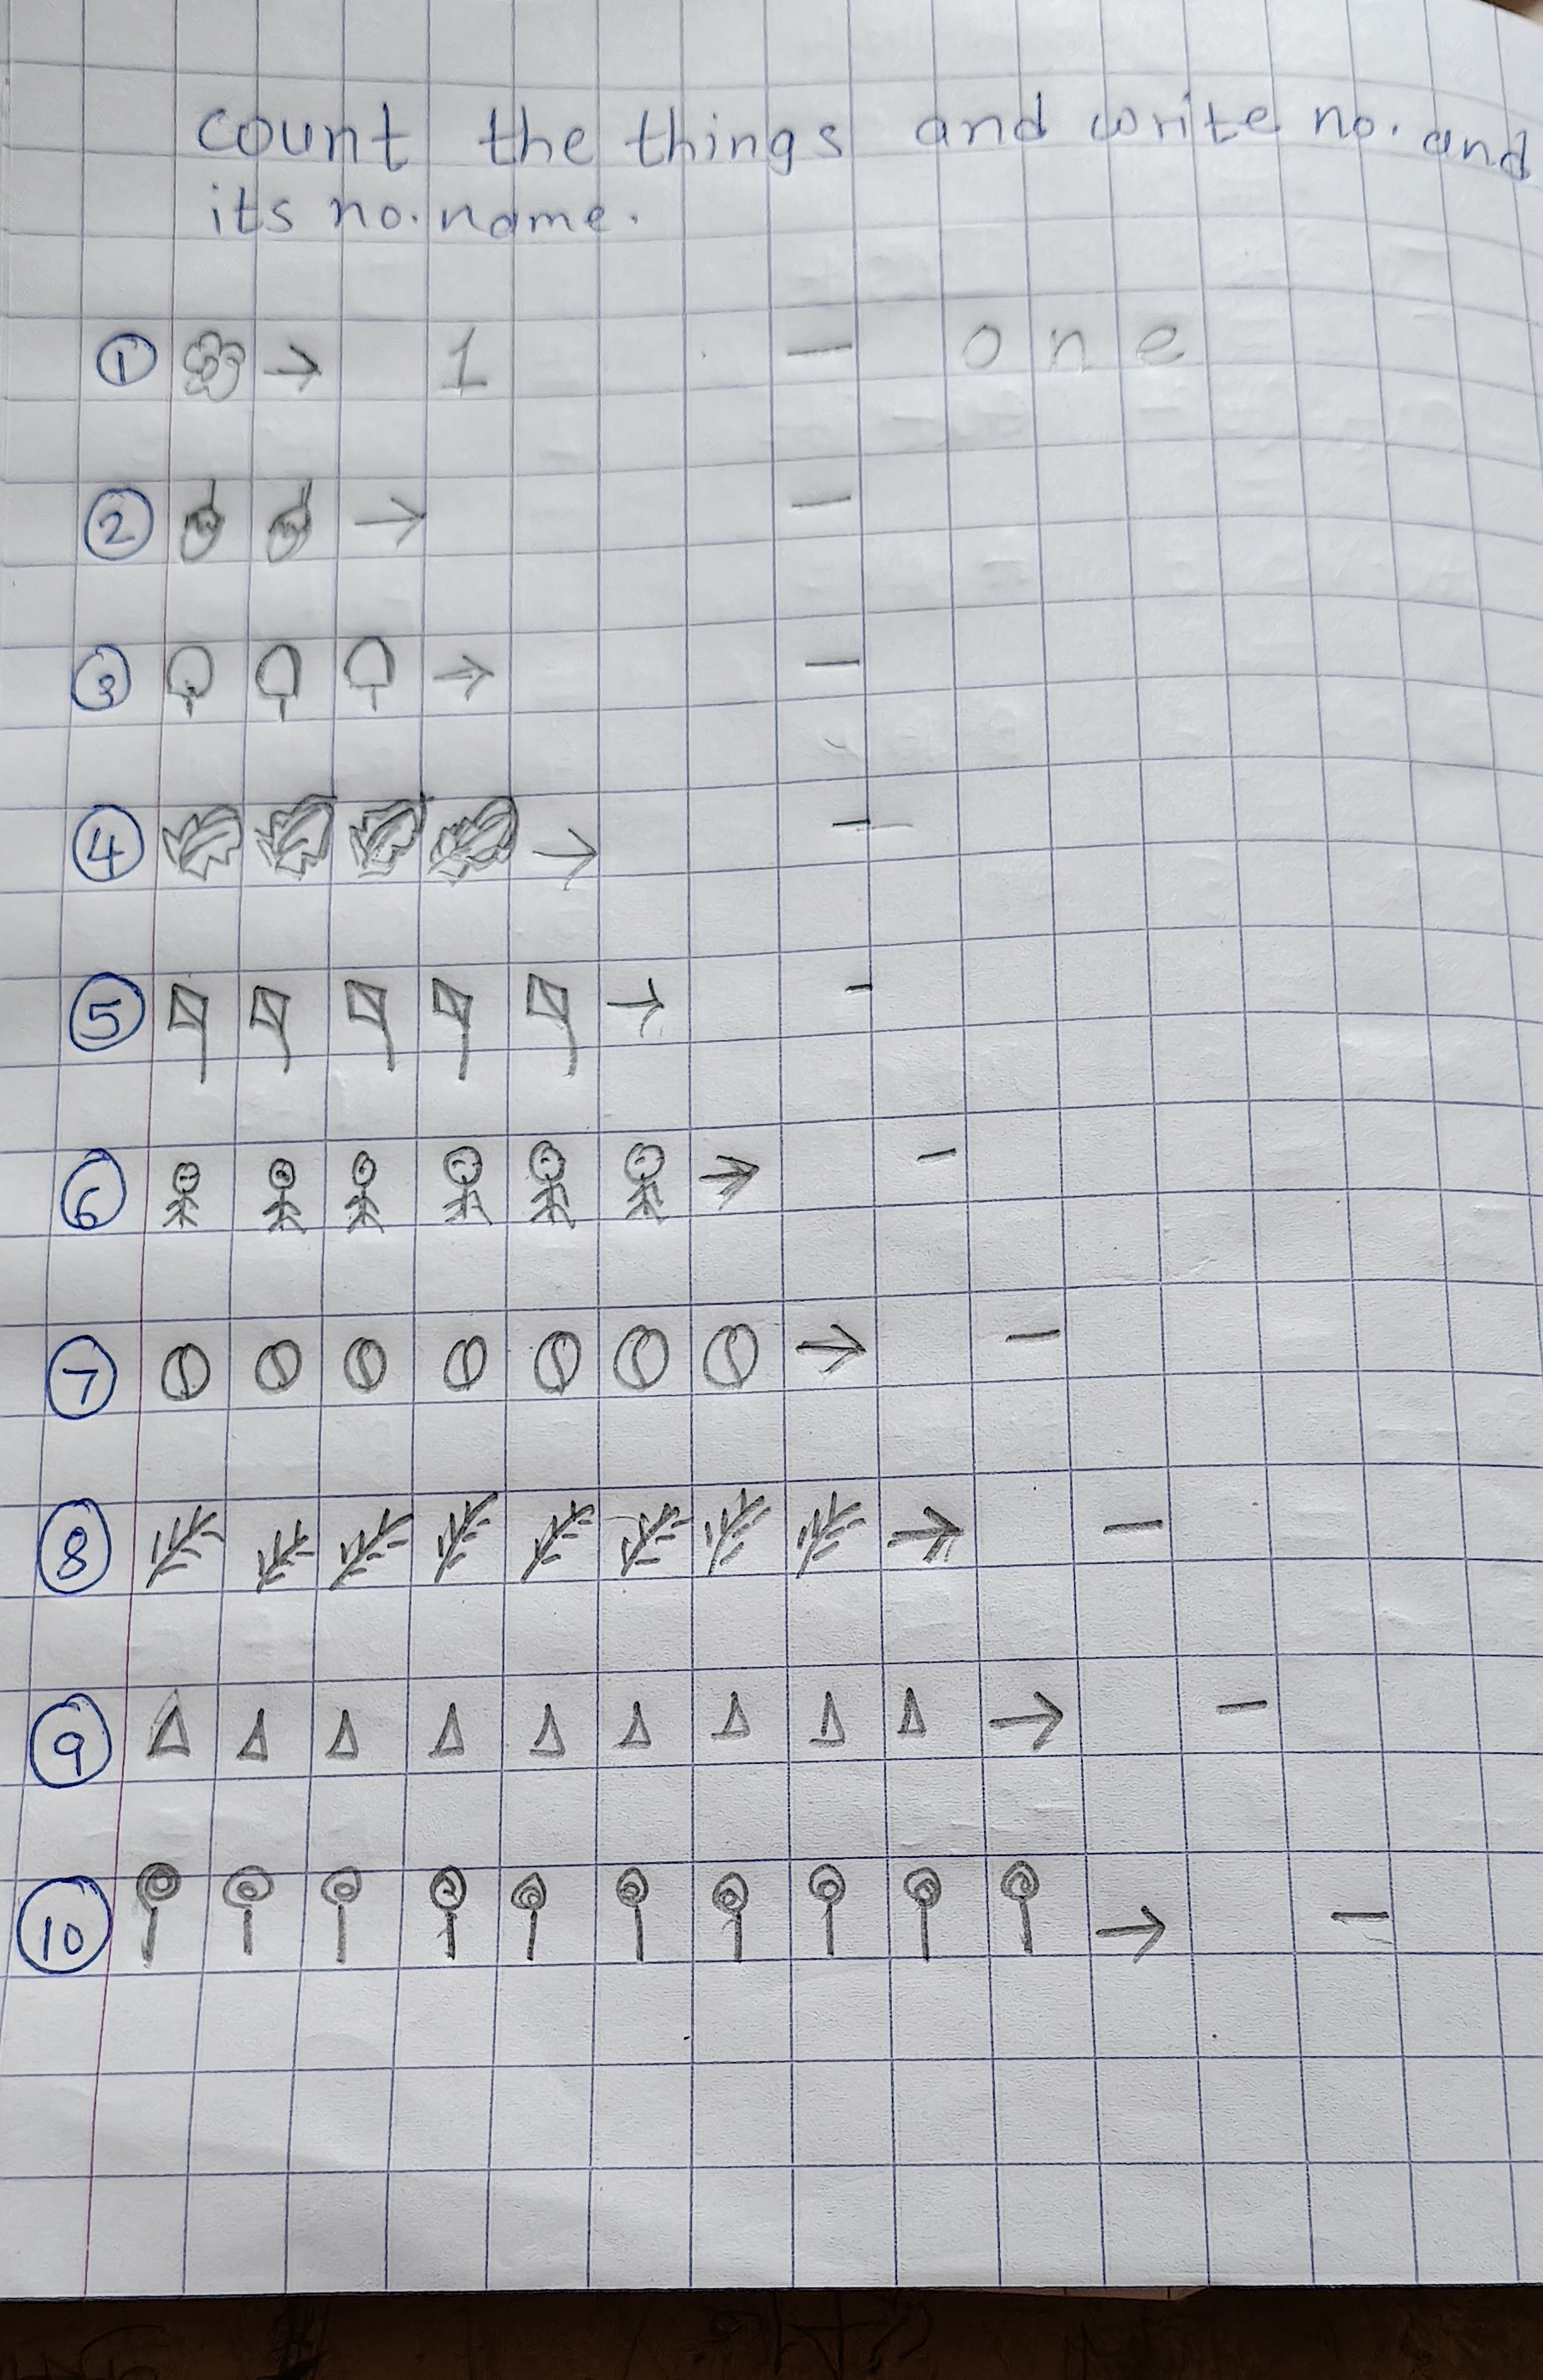 count the things and write no. and
its no. name.
① → 1 — one
② → —
③ → —
④ → —
⑤ → -
⑥ → —
⑦ → —
⑧ → —
⑨ → —
⑩ → —